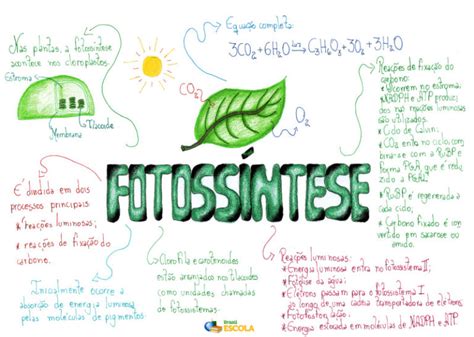 Nas plantas, a fotossíntese
acontece nos cloroplastos.
Estroma
Tilacoide
Membrana
Equação completa:
3CO₂+6H₂O luz→ C₃H₆O₃+3O₂+3H₂O
CO₂
O₂
FOTOSSÍNTESE
Reações de fixação do
carbono:
*Ocorrem no estroma;
*NADPH e ATP produzi-
dos nas reações luminosas
são utilizados.
* Ciclo de Calvin:
* CO₂ entra no ciclo, com-
bina-se com a RuBP e
forma PGA que é redu-
zido a PGAL.
* RuBP é regenerada a
cada ciclo;
* Carbono fixado é con-
vertido em sacarose ou
amido.
É dividida em dois
processos principais:
*reações luminosas;
* reações de fixação do
carbono.
Inicialmente ocorre a
absorção de energia luminosa
pelas moléculas de pigmentos.
Clorofila e carotenoides
estão arranjados nos tilacoides
como unidades chamadas
de fotossistemas.
Reações luminosas:
*Energia luminosa entra no fotossistema II;
*Fotólise da água;
*Elétrons passam para o fotossistema I
ao longo de uma cadeia transportadora de elétrons
*Fotofosforilação
*Energia estocada em moléculas de NADPH e ATP.
Brasil
ESCOLA